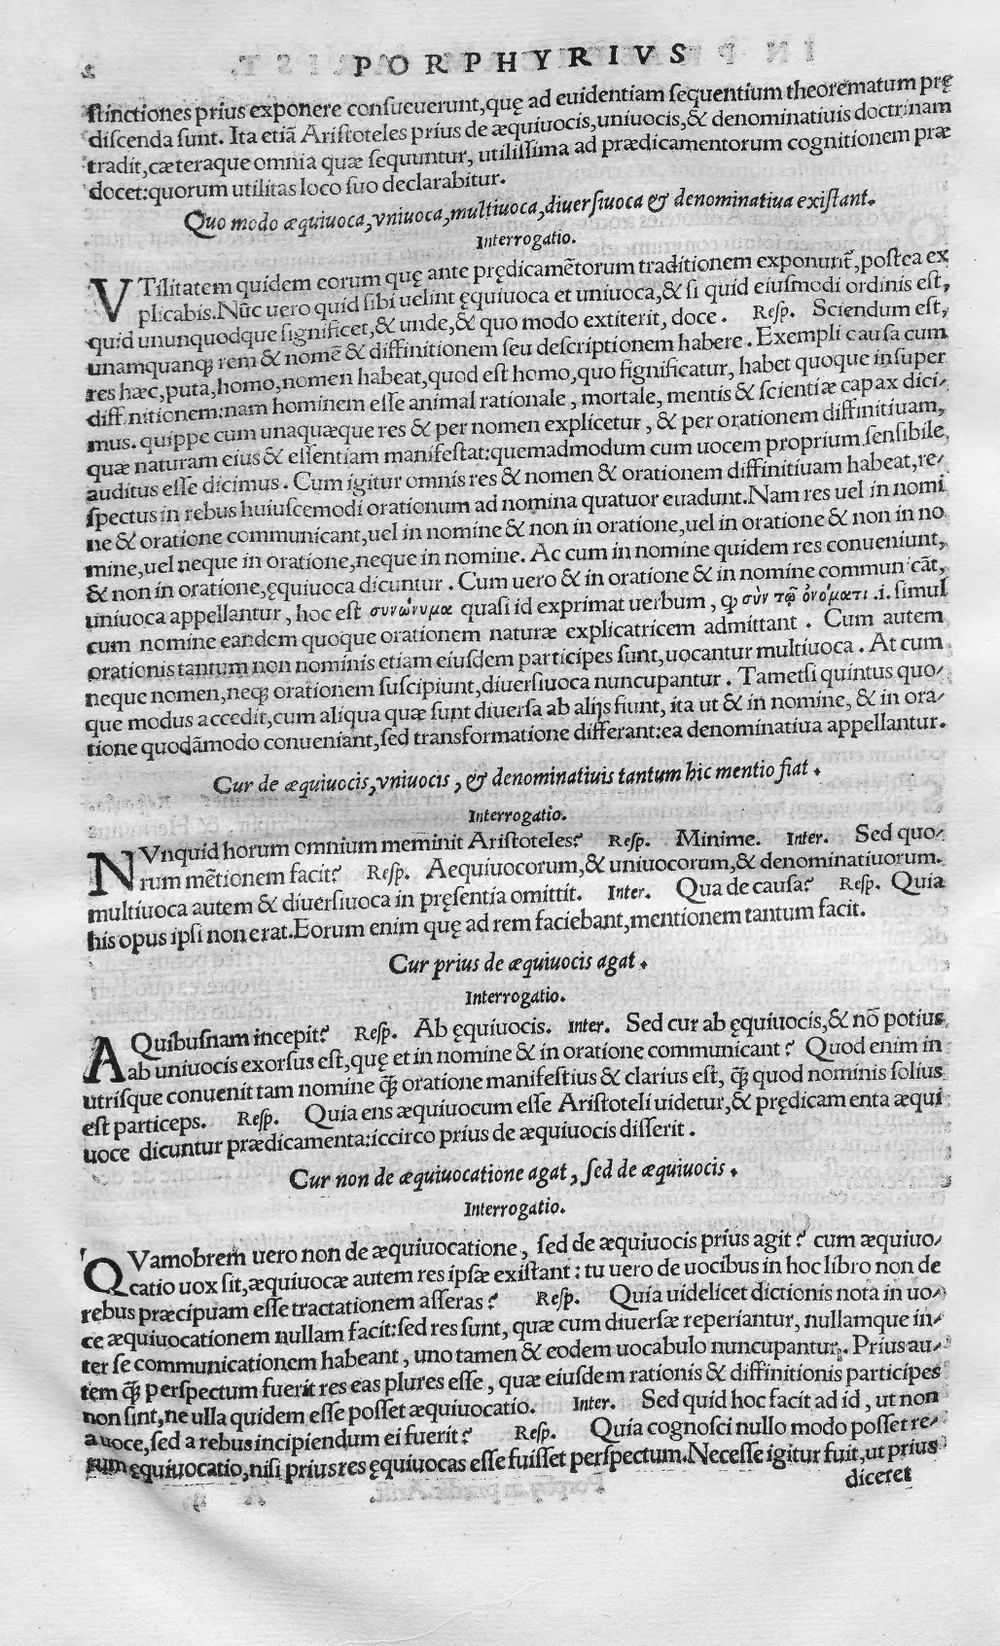 PORPHYRIVS
ſtinctiones prius exponere conſueuerunt,quę ad euidentiam ſequentium theorematum prę
diſcenda ſunt. Ita etiã Ariſtoteles prius de æquiuocis,uniuocis,& denominatiuis doctrinam
tradit,cæteraque omnia quæ ſequuntur, utiliſſima ad prædicamentorum cognitionem præ
docet:quorum utilitas loco ſuo declarabitur.
Quo modo æquiuoca,vniuoca,multiuoca,diuerſiuoca & denominatiua exiſtant.
Interrogatio.
VTilitatem quidem eorum quę ante prędicamẽtorum traditionem exponunt̃,poſtea ex
plicabis.Nũc uero quid ſibi uelint ęquiuoca et uniuoca,& ſi quid eiuſmodi ordinis eſt,
quid ununquodque ſignificet,& unde,& quo modo extiterit, doce. Reſp. Sciendum eſt,
unamquanq; rem & nomẽ & diffinitionem ſeu deſcriptionem habere. Exempli cauſa cum
res hæc,puta,homo,nomen habeat,quod eſt homo,quo ſignificatur, habet quoque inſuper
diffinitionem:nam hominem eſſe animal rationale, mortale, mentis & ſcientiæ capax dici/
mus. quippe cum unaquæque res & per nomen explicetur, & per orationem diffinitiuam,
quæ naturam eius & eſſentiam manifeſtat:quemadmodum cum uocem proprium ſenſibile
auditus eſſe dicimus. Cum igitur omnis res & nomen & orationem diffinitiuam habeat,re/
ſpectus in rebus huiuſcemodi orationum ad nomina quatuor euadunt.Nam res uel in nomi
ne & oratione communicant,uel in nomine & non in oratione,uel in oratione & non in no
mine,uel neque in oratione,neque in nomine. Ac cum in nomine quidem res conueniunt,
& non in oratione,ęquiuoca dicuntur. Cum uero & in oratione & in nomine communicãt,
uniuoca appellantur, hoc eſt συνώνυμα quaſi id exprimat uerbum, ꝙ σὺν τῷ ὀνόματι .i. ſimul
cum nomine eandem quoque orationem naturæ explicatricem admittant. Cum autem
orationis tantum non nominis etiam eiuſdem participes ſunt,uocantur multiuoca. At cum
neque nomen,neq; orationem ſuſcipiunt,diuerſiuoca nuncupantur. Tametſi quintus quo/
que modus accedit,cum aliqua quæ ſunt diuerſa ab alijs fiunt, ita ut & in nomine, & in ora/
tione quodãmodo conueniant,ſed transformatione differant:ea denominatiua appellantur.
Cur de æquiuocis,vniuocis, & denominatiuis tantum hic mentio fiat.
Interrogatio.
NVnquid horum omnium meminit Ariſtoteles? Reſp. Minime. Inter. Sed quo/
rum mẽtionem facit? Reſp. Aequiuocorum,& uniuocorum,& denominatiuorum.
multiuoca autem & diuerſiuoca in pręſentia omittit. Inter. Qua de cauſa? Reſp. Quia
his opus ipſi non erat.Eorum enim quę ad rem faciebant,mentionem tantum facit.
Cur prius de æquiuocis agat.
Interrogatio.
A Quibuſnam incepit? Reſp. Ab ęquiuocis. Inter. Sed cur ab ęquiuocis,& nõ potius
ab uniuocis exorſus eſt,quę et in nomine & in oratione communicant? Quod enim in
utriſque conuenit tam nomine q̃; oratione manifeſtius & clarius eſt, q̃; quod nominis ſolius
eſt particeps. Reſp. Quia ens æquiuocum eſſe Ariſtoteli uidetur,& prędicamenta æqui
uoce dicuntur prædicamenta:iccirco prius de æquiuocis diſſerit.
Cur non de æquiuocatione agat, ſed de æquiuocis.
Interrogatio.
QVamobrem uero non de æquiuocatione, ſed de æquiuocis prius agit? cum æquiuo/
catio uox ſit,æquiuocæ autem res ipſæ exiſtant: tu uero de uocibus in hoc libro non de
rebus præcipuam eſſe tractationem aſſeras? Reſp. Quia uidelicet dictionis nota in uo/
ce æquiuocationem nullam facit:ſed res ſunt, quæ cum diuerſæ reperiantur, nullamque in/
ter ſe communicationem habeant, uno tamen & eodem uocabulo nuncupantur. Prius au/
tem q̃; perſpectum fuerit res eas plures eſſe, quæ eiuſdem rationis & diffinitionis participes
non ſint,ne ulla quidem eſſe poſſet æquiuocatio. Inter. Sed quid hoc facit ad id, ut non
a uoce,ſed a rebus incipiendum ei fuerit? Reſp. Quia cognoſci nullo modo poſſet re/
rum ęquiuocatio,niſi prius res ęquiuocas eſſe fuiſſet perſpectum.Neceſſe igitur fuit,ut prius
diceret